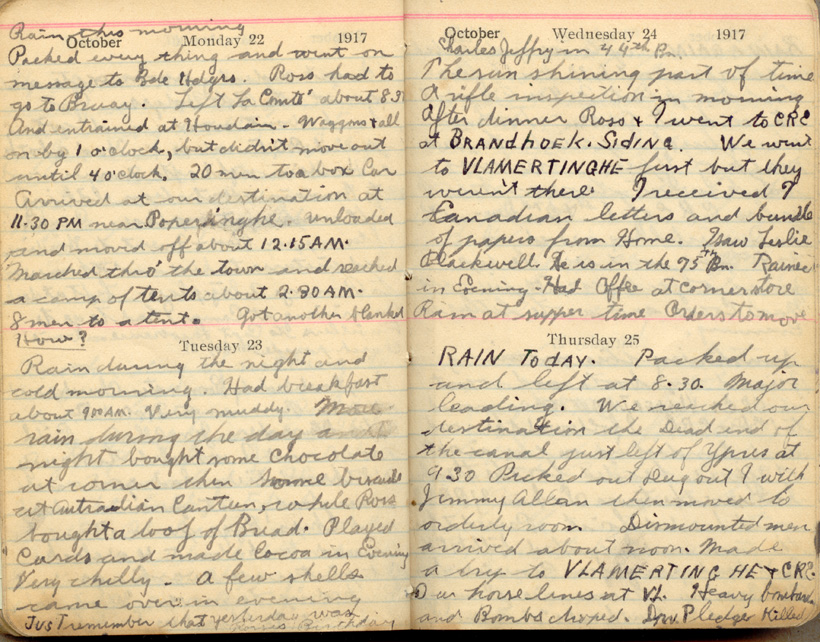 Rain this morning
October Monday 22 1917
Packed every thing and went on
message to Bde Hdqrs. Ross had to
go to Bruay. Left La Comté about 8.3
And entrained at Houdain - Waggons & all
on by 1 o'clock, but didn't move out
until 4 o'clock. 20 men to a box Car
Arrived at our destination at
11.30 PM near Poperinghe. Unloaded
and moved off about 12.15 AM.
Marched thro' the town and reached
a camp of tents about 2.30 AM.
8 men to a tent. Got another blanket
How?
Tuesday 23
Rain during the night and
cold morning. Had breakfast
about 9.00 AM. Very muddy. More
rain during the day and
night bought some chocolate
at corner then some biscuits
at Australian Canteen, while Ross
bought a loaf of Bread. Played
Cards and made Cocoa in Evening
Very chilly - A few shells
came over in evening
Just remember that yesterday was
Ross's Birthday
October Wednesday 24 1917
Charles Jeffry in 44th Bn.
The sun shining part of time
A rifle inspection in morning
After dinner Ross & I went to CRE
at BRANDHOEK. SIDING. We went
to VLAMERTINGHE first but they
weren't there. I received 7
Canadian letters and bundle
of papers from Home. Saw Leslie
Blackwell. He is in the 75th Bn. Rained
in Evening - Had Coffee at corner store
Rain at supper time Orders to move
Thursday 25
RAIN TODAY. Packed up
and left at 8.30. Major
leading. We reached our
destination the Dead end of
the canal just left of Ypres at
9.30 Picked out Dug out I with
Jimmy Allan then moved to
orderly room Dismounted men
arrived about noon. Made
a trip to VLAMERTINGHE & CRE
Our horse lines at Vl. Heavy bombard
and Bombs dropped. Drv. Pledger Killed